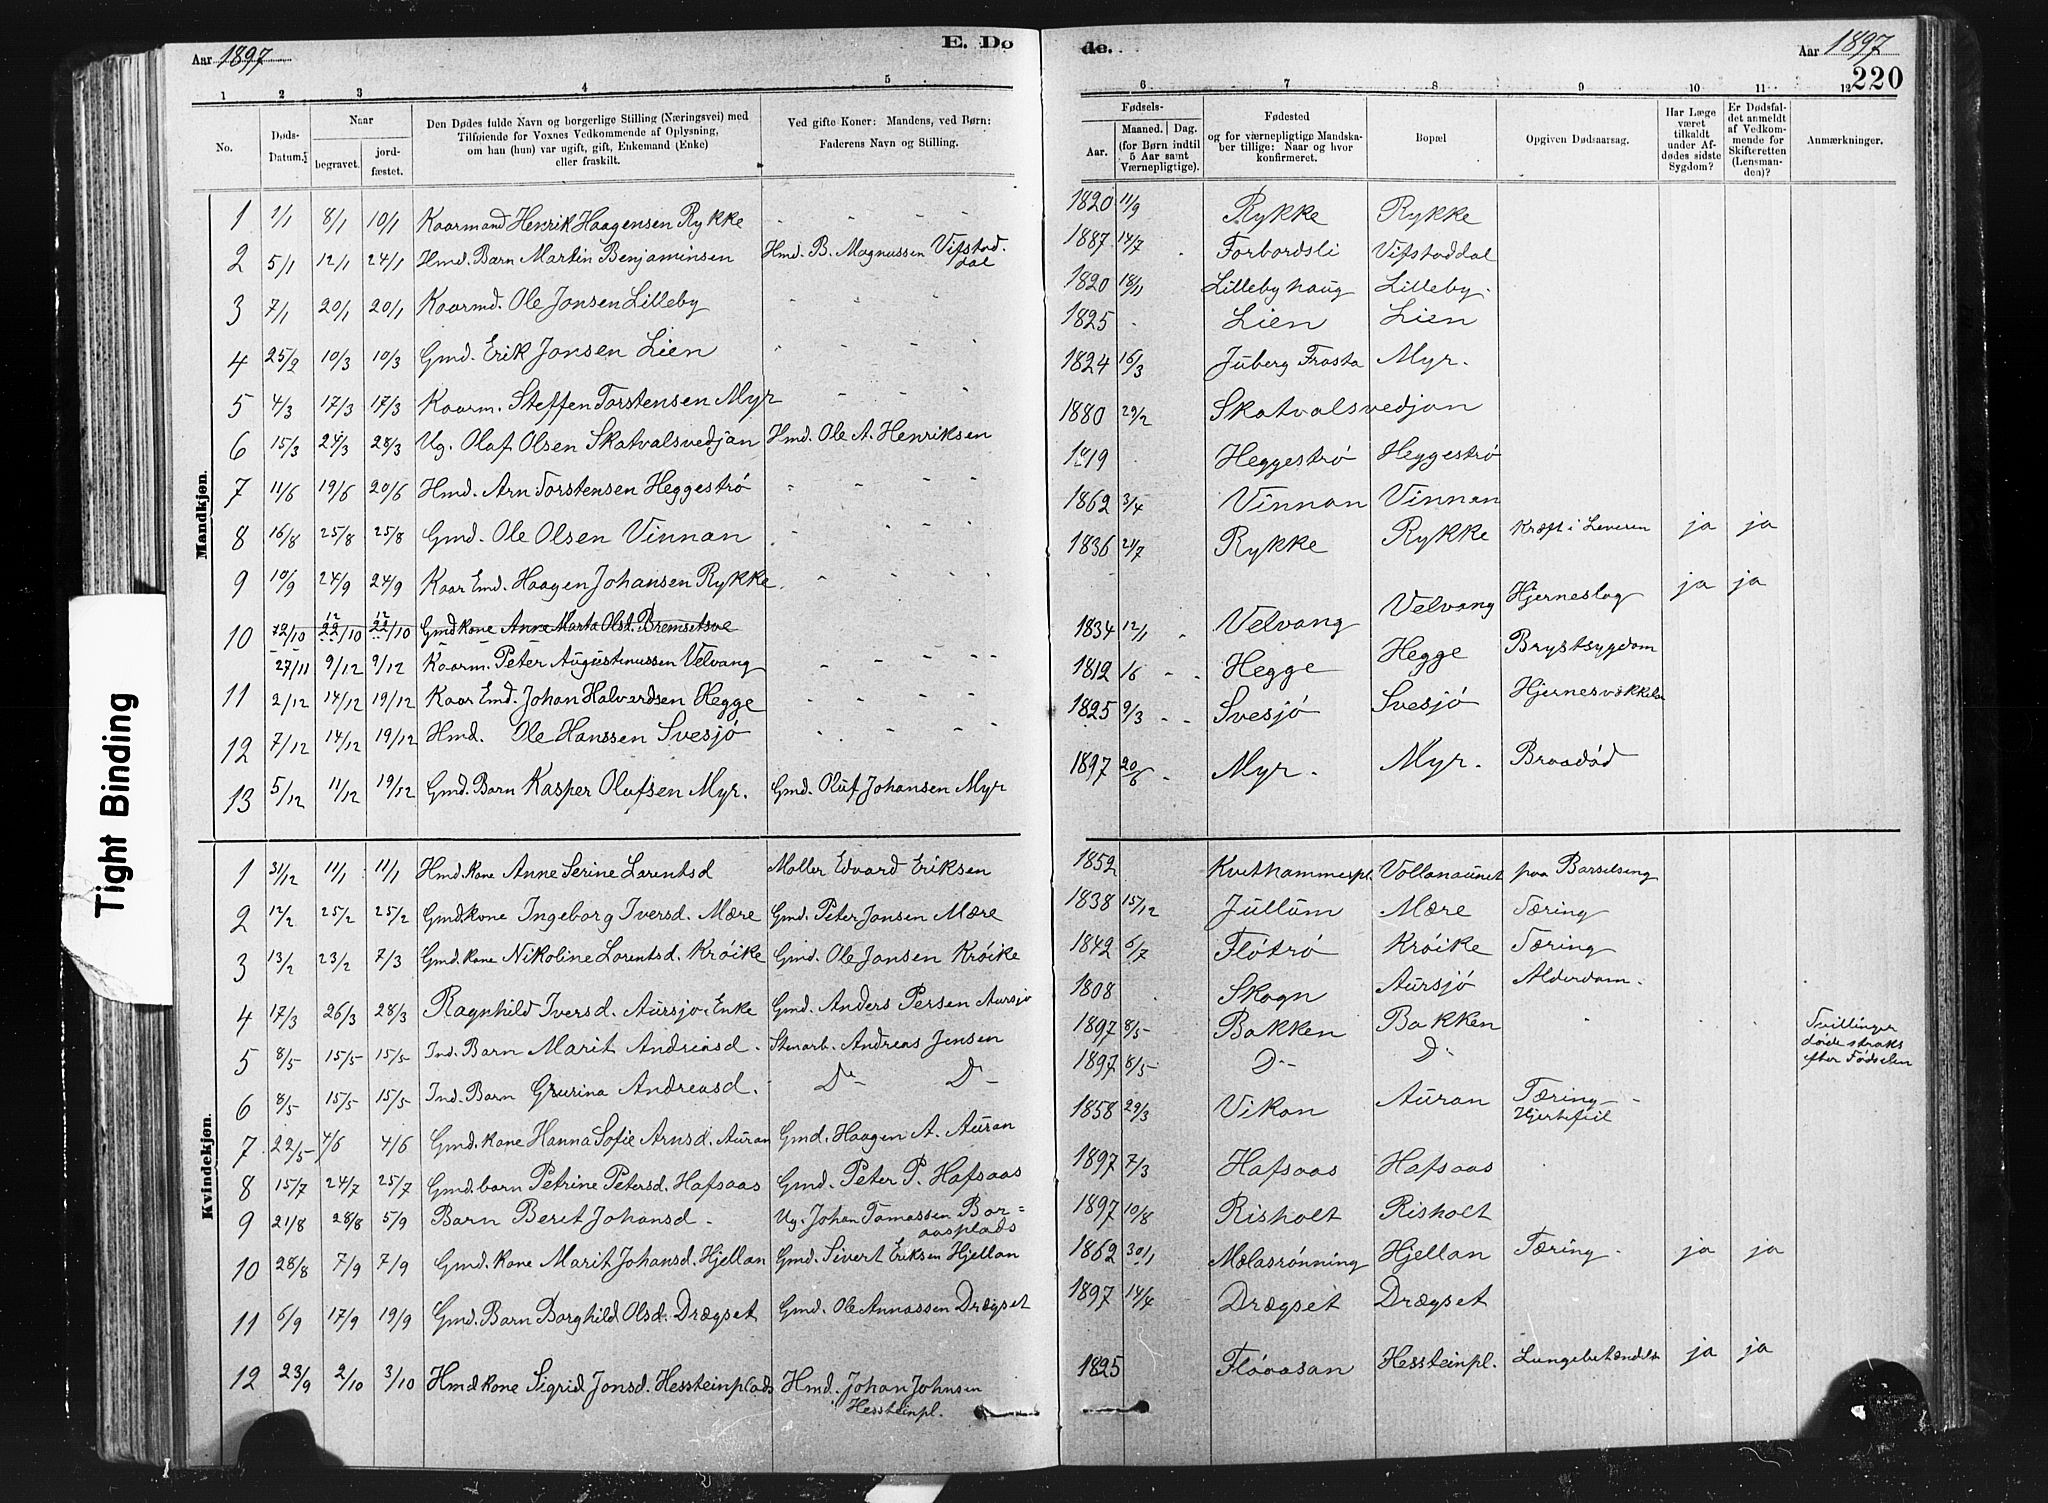 Aar 1897
E. Dø
de.
Aar 1897
220
1 2 3 4 5
6 7 8 9 10 11 12
No.
Døds-Datum.
Naar
begravet.
jordfæstet.
Den Dødes fulde Navn og borgerlige Stilling (Næringsvei) med
Tilføiende for Voxnes Vedkommende af Oplysning,
om han (hun) var ugift, gift, Enkemand (Enke)
eller fraskilt.
Ved gifte Koner: Mandens, ved Børn:
Faderens Navn og Stilling.
Fødsels-
Aar.
Maaned. Dag.
(for Børn indtil
5 Aar samt
Værnepligtige).
Fødested
og for værnepligtige Mandska-
ber tillige: Naar og hvor
konfirmeret.
Bopæl
Opgiven Dødsaarsag.
Har Læge
været
tilkaldt
under Af-
dødes sidste
Sygdom?
Er Dødsfal-
det anmeldt
af Vedkom-
mende for
Skifteretten
(Lensman-
den)?
Anmærkninger.
Mandkjøn.
1 1/1 8/1 10/1 Kaarmand Henrik Haagensen Rykke - - - - 1820 11/9 Rykke Rykke
2 5/1 12/1 24/1 Hmd. Barn Martin Benjaminsen Hmd. B. Magnussen Vifstad-
dal 1887 14/7 Forbordsli Vifstaddal
3 7/1 20/1 20/1 Kaarmd. Ole Jonsen Lilleby - - - - 1820 18/11 Lillebyhaug Lilleby.
4 25/2 10/3 10/3 Gmd. Erik Jonsen Lien - - - - 1825 - Lien Lien
5 4/3 17/3 17/3 Kaarm. Steffen Torstensen Myr - - - 1824 16/3 Juberg Frosta Myr.
6 15/3 24/3 28/3 Ug. Olaf Olsen Skatvalsvedjan Hmd. Ole A. Henriksen 1880 29/2 Skatvalsvedjan
7 11/6 19/6 20/6 Hmd. Arn Torstensen Heggestrø - - - - 1819 Heggestrø Heggestrø
8 16/8 25/8 25/8 Gmd. Ole Olsen Vinnan - - - - 1862 3/4 Vinnan Vinnan Kræft i Leveren ja ja
9 10/9 24/9 24/9 Kaar Emd. Haagen Johansen Rykke - - - - 1836 24/7 Rykke Rykke Hjerneslag ja ja
10 12/10 22/10 22/10 Gmdkone Anne Marta Olsd. Bremsetsve
27/11 9/12 9/12 Kaarm. Peter Augustinussen Velvang - - - - 1834 12/1 Velvang Velvang Brystsygdom
11 2/12 14/12 19/12 Kaar Emd. Johan Halvardsen Hegge - - - - 1812 16 Hegge Hegge
12 7/12 14/12 19/12 Hmd. Ole Hanssen Svesjø - - - - 1825 9/3 Svesjø Svesjø
13 5/12 11/12 19/12 Gmd. Barn Kasper Olufsen Myr. Gmd. Oluf Johansen Myr 1897 20/6 Myr. Myr. Braadød
Kvindekjøn.
1 31/12 11/1 11/1 Hmd kone Anne Serine Lorentsd Møller Edvard Eriksen 1852 Kvithammerpl. Vollanaunet paa Barselseng
2 12/2 25/2 25/2 Gmdkone Ingeborg Iversd. Mære Gmd. Peter Jonsen Mære 1838 15/12 Jullum Mære Tæring
3 13/2 23/2 7/3 Gmd. kone Nikoline Lorentsd. Krøike Gmd. Ole Jonsen Krøike 1842 6/7 Fløtrø Krøike Tæring
4 17/3 26/3 28/3 Ragnhild Iversd. Aursjø. Enke Gmd. Anders Persen Aursjø 1808 Skogn Aursjø Alderdom.
5 8/5 15/5 15/5 Ind. Barn Marit Andreasd. Stenarb. Andreas Jensen 1897 8/5 Bakken Bakken - - - Tvillinger
døde straks
efter Fødselen
6 8/5 15/5 15/5 Ind. Barn Gurina Andreasd. Do D- 1897 8/5 D- D-
7 22/5 4/6 4/6 Gmd. kone Hanna Sofie Arnsd. Auran Gmd. Haagen A. Auran 1858 29/3 Vikan Auran Tæring-
Hjertefeil
8 15/7 24/7 25/7 Gmd. barn Petrine Petersd. Hafsaas Gmd. Peter P. Hafsaas 1897 7/3 Hafsaas Hafsaas
9 21/8 28/8 5/9 Barn Beret Johansd. Ug. Johan Tomassen Bor-
aasplads 1897 10/8 Risholt Risholt
10 28/8 7/9 7/9 Gmd. kone Marit Johansd. Hjellan Gmd. Sivert Eriksen Hjellan 1862 30/1 Mælasrønning Hjellan Tæring. ja ja
11 6/9 17/9 19/9 Gmd. Barn Borghild Olsd. Drægset Gmd. Ole Annassen Drægset 1897 14/4 Drægset Drægset
12 23/9 2/10 3/10 Hmdkone Sigrid Jonsd. Hessteinplads Hmd. Johan Johnsen
Hessteinpl. 1825 Floraasan Hessteinpl. Lungebetændelse ja ja
Tight Binding